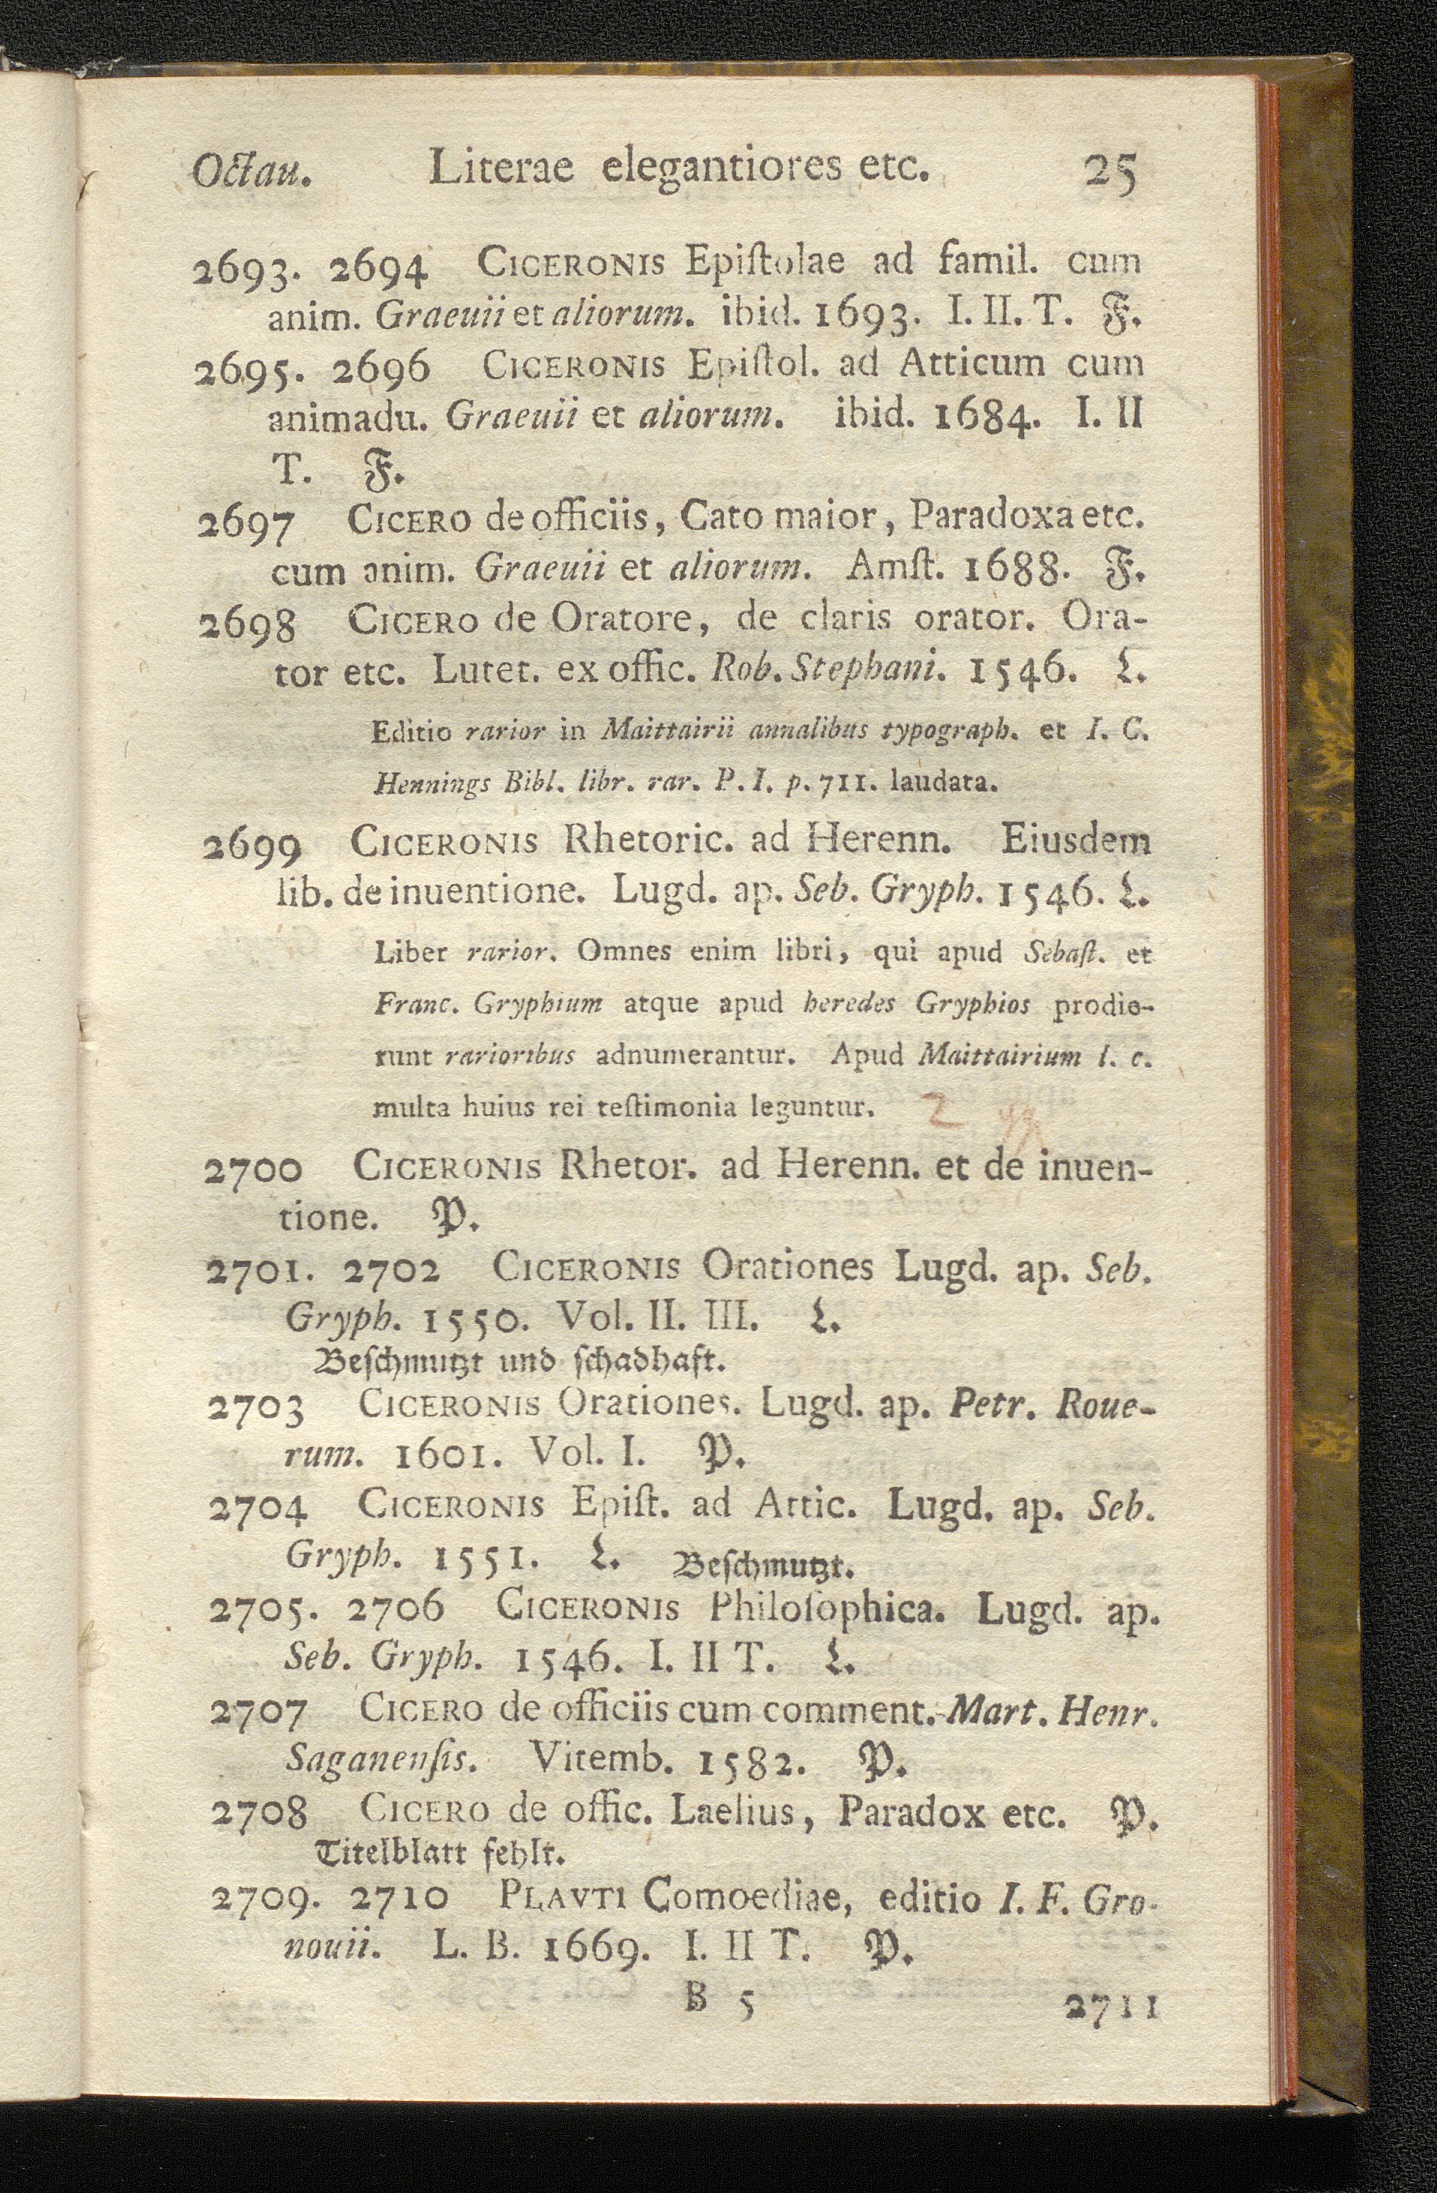 Octau. Literae elegantiores etc. 25
2693. 2694 CICERONIS Epiſtolae ad famil. cum
anim. Graeuii et aliorum. ibid. 1693. I. II. T. F.
2695. 2696 CICERONIS Epiſtol. ad Atticum cum
animadu. Graeuii et aliorum. ibid. 1684. I. II
T. F.
2697 CICERO de officiis, Cato maior, Paradoxa etc.
cum anim. Graeuii et aliorum. Amſt. 1688. F.
2698 CICERO de Oratore, de claris orator. Ora-
tor etc. Lutet. ex offic. Rob. Stephani. 1546. L.
Editio rarior in Maittairii annalibus typograph. et I. C.
Hennings Bibl. libr. rar. P. I. p. 711. laudata.
2699 CICERONIS Rhetoric. ad Herenn. Eiusdem
lib. de inuentione. Lugd. ap. Seb. Gryph. 1546. L.
Liber rarior. Omnes enim libri, qui apud Sebaſt. et
Franc. Gryphium atque apud heredes Gryphios prodie-
runt rarioribus adnumerantur. Apud Maittairium l. c.
multa huius rei teſtimonia leguntur. 2
2700 CICERONIS Rhetor. ad Herenn. et de inuen-
tione. P.
2701. 2702 CICERONIS Orationes Lugd. ap. Seb.
Gryph. 1550. Vol. II. III. L.
Beſchmutzt und ſchadhaft.
2703 CICERONIS Orationes. Lugd. ap. Petr. Roue-
rum. 1601. Vol. I. P.
2704 CICERONIS Epiſt. ad Attic. Lugd. ap. Seb.
Gryph. 1551. L. Beſchmutzt.
2705. 2706 CICERONIS Philoſophica. Lugd. ap.
Seb. Gryph. 1546. I. II T. L.
2707 CICERO de officiis cum comment. Mart. Henr.
Saganenſis. Vitemb. 1582. P.
2708 CICERO de offic. Laelius, Paradox etc. P.
Titelblatt fehlt.
2709. 2710 PLAVTI Comoediae, editio I. F. Gro-
nouii. L. B. 1669. I. II T. P.
B 5 2711